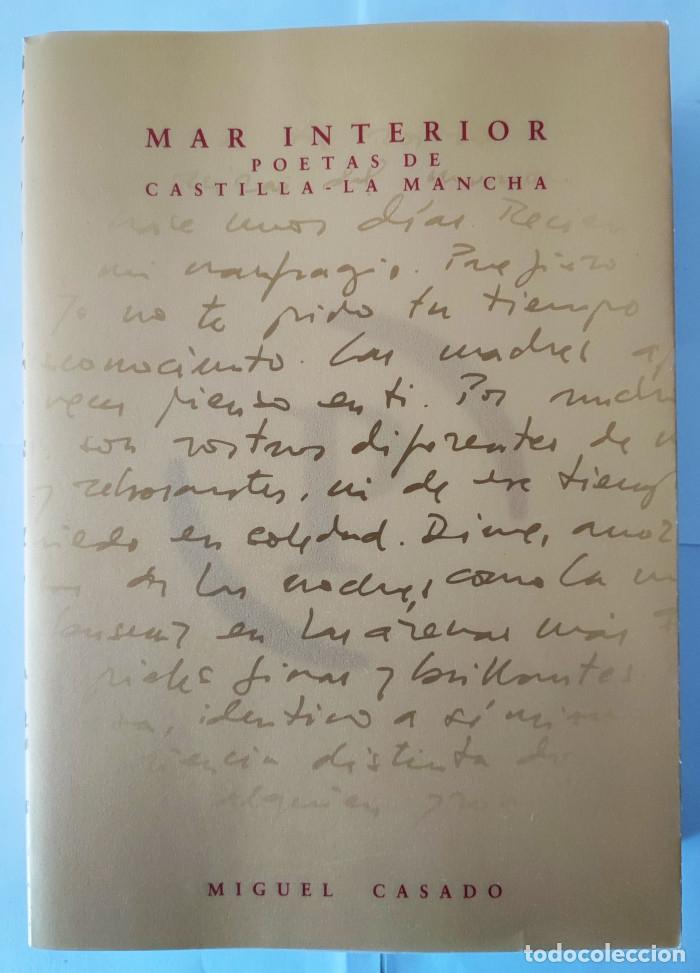 MAR INTERIOR
POETAS DE
CASTILLA-LA MANCHA
hace unos días. Recien
mi naufragio. Prefiero
Yo no te pido tu tiempo
conocimiento. Las madres
veces pienso en ti. Por
son rostros diferentes de
y rebosantes, ni de ese tiemp
miedo en soledad. Dime, amor
de las noches, como la
en las arenas más
pieles finas y brillantes
identico a sí mism
distinta de
alguien
P
MIGUEL CASADO
todocoleccion